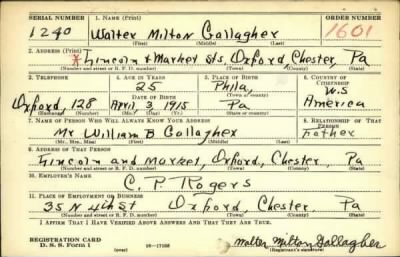 SERIAL NUMBER 1. NAME (Print) ORDER NUMBER
1240 Walter Milton Gallagher 1601
(First) (Middle) (Last)
2. ADDRESS (Print)
x Lincoln & Market Sts, Oxford, Chester, Pa
(Number and street or R. F. D. number) (Town) (County) (State)
3. TELEPHONE 4. AGE IN YEARS 5. PLACE OF BIRTH 6. COUNTRY OF CITIZENSHIP
25 Phila, U.S
DATE OF BIRTH (Town or county)
Oxford, 128 April, 3, 1915 Pa America
(Exchange) (Number) (Mo.) (Day) (Yr.) (State or country)
7. NAME OF PERSON WHO WILL ALWAYS KNOW YOUR ADDRESS 8. RELATIONSHIP OF THAT PERSON
Mr William B Gallagher Father
(Mr., Mrs., Miss) (First) (Middle) (Last)
9. ADDRESS OF THAT PERSON
Lincoln and Market, Oxford, Chester, Pa
(Number and street or R. F. D. number) (Town) (County) (State)
10. EMPLOYER'S NAME
C. P. Rogers
11. PLACE OF EMPLOYMENT OR BUSINESS
35 N 4th St Oxford, Chester, Pa
(Number and street or R. F. D. number) (Town) (County) (State)
I AFFIRM THAT I HAVE VERIFIED ABOVE ANSWERS AND THAT THEY ARE TRUE.
REGISTRATION CARD
D. S. S. Form 1 (over) 16—17105 Walter Milton Gallagher
(Registrant's signature)